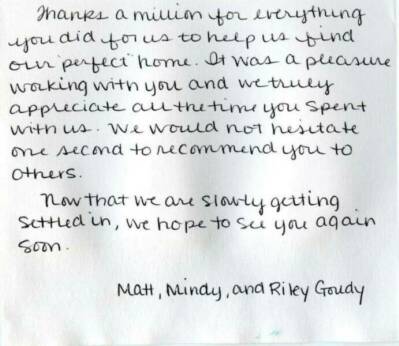 Thanks a million for everything
you did for us to help us find
our "perfect" home. It was a pleasure
working with you and we truly
appreciate all the time you spent
with us. We would not hesitate
one second to recommend you to
others.
Now that we are slowly getting
settled in, we hope to see you again
soon.
Matt, Mindy, and Riley Goudy